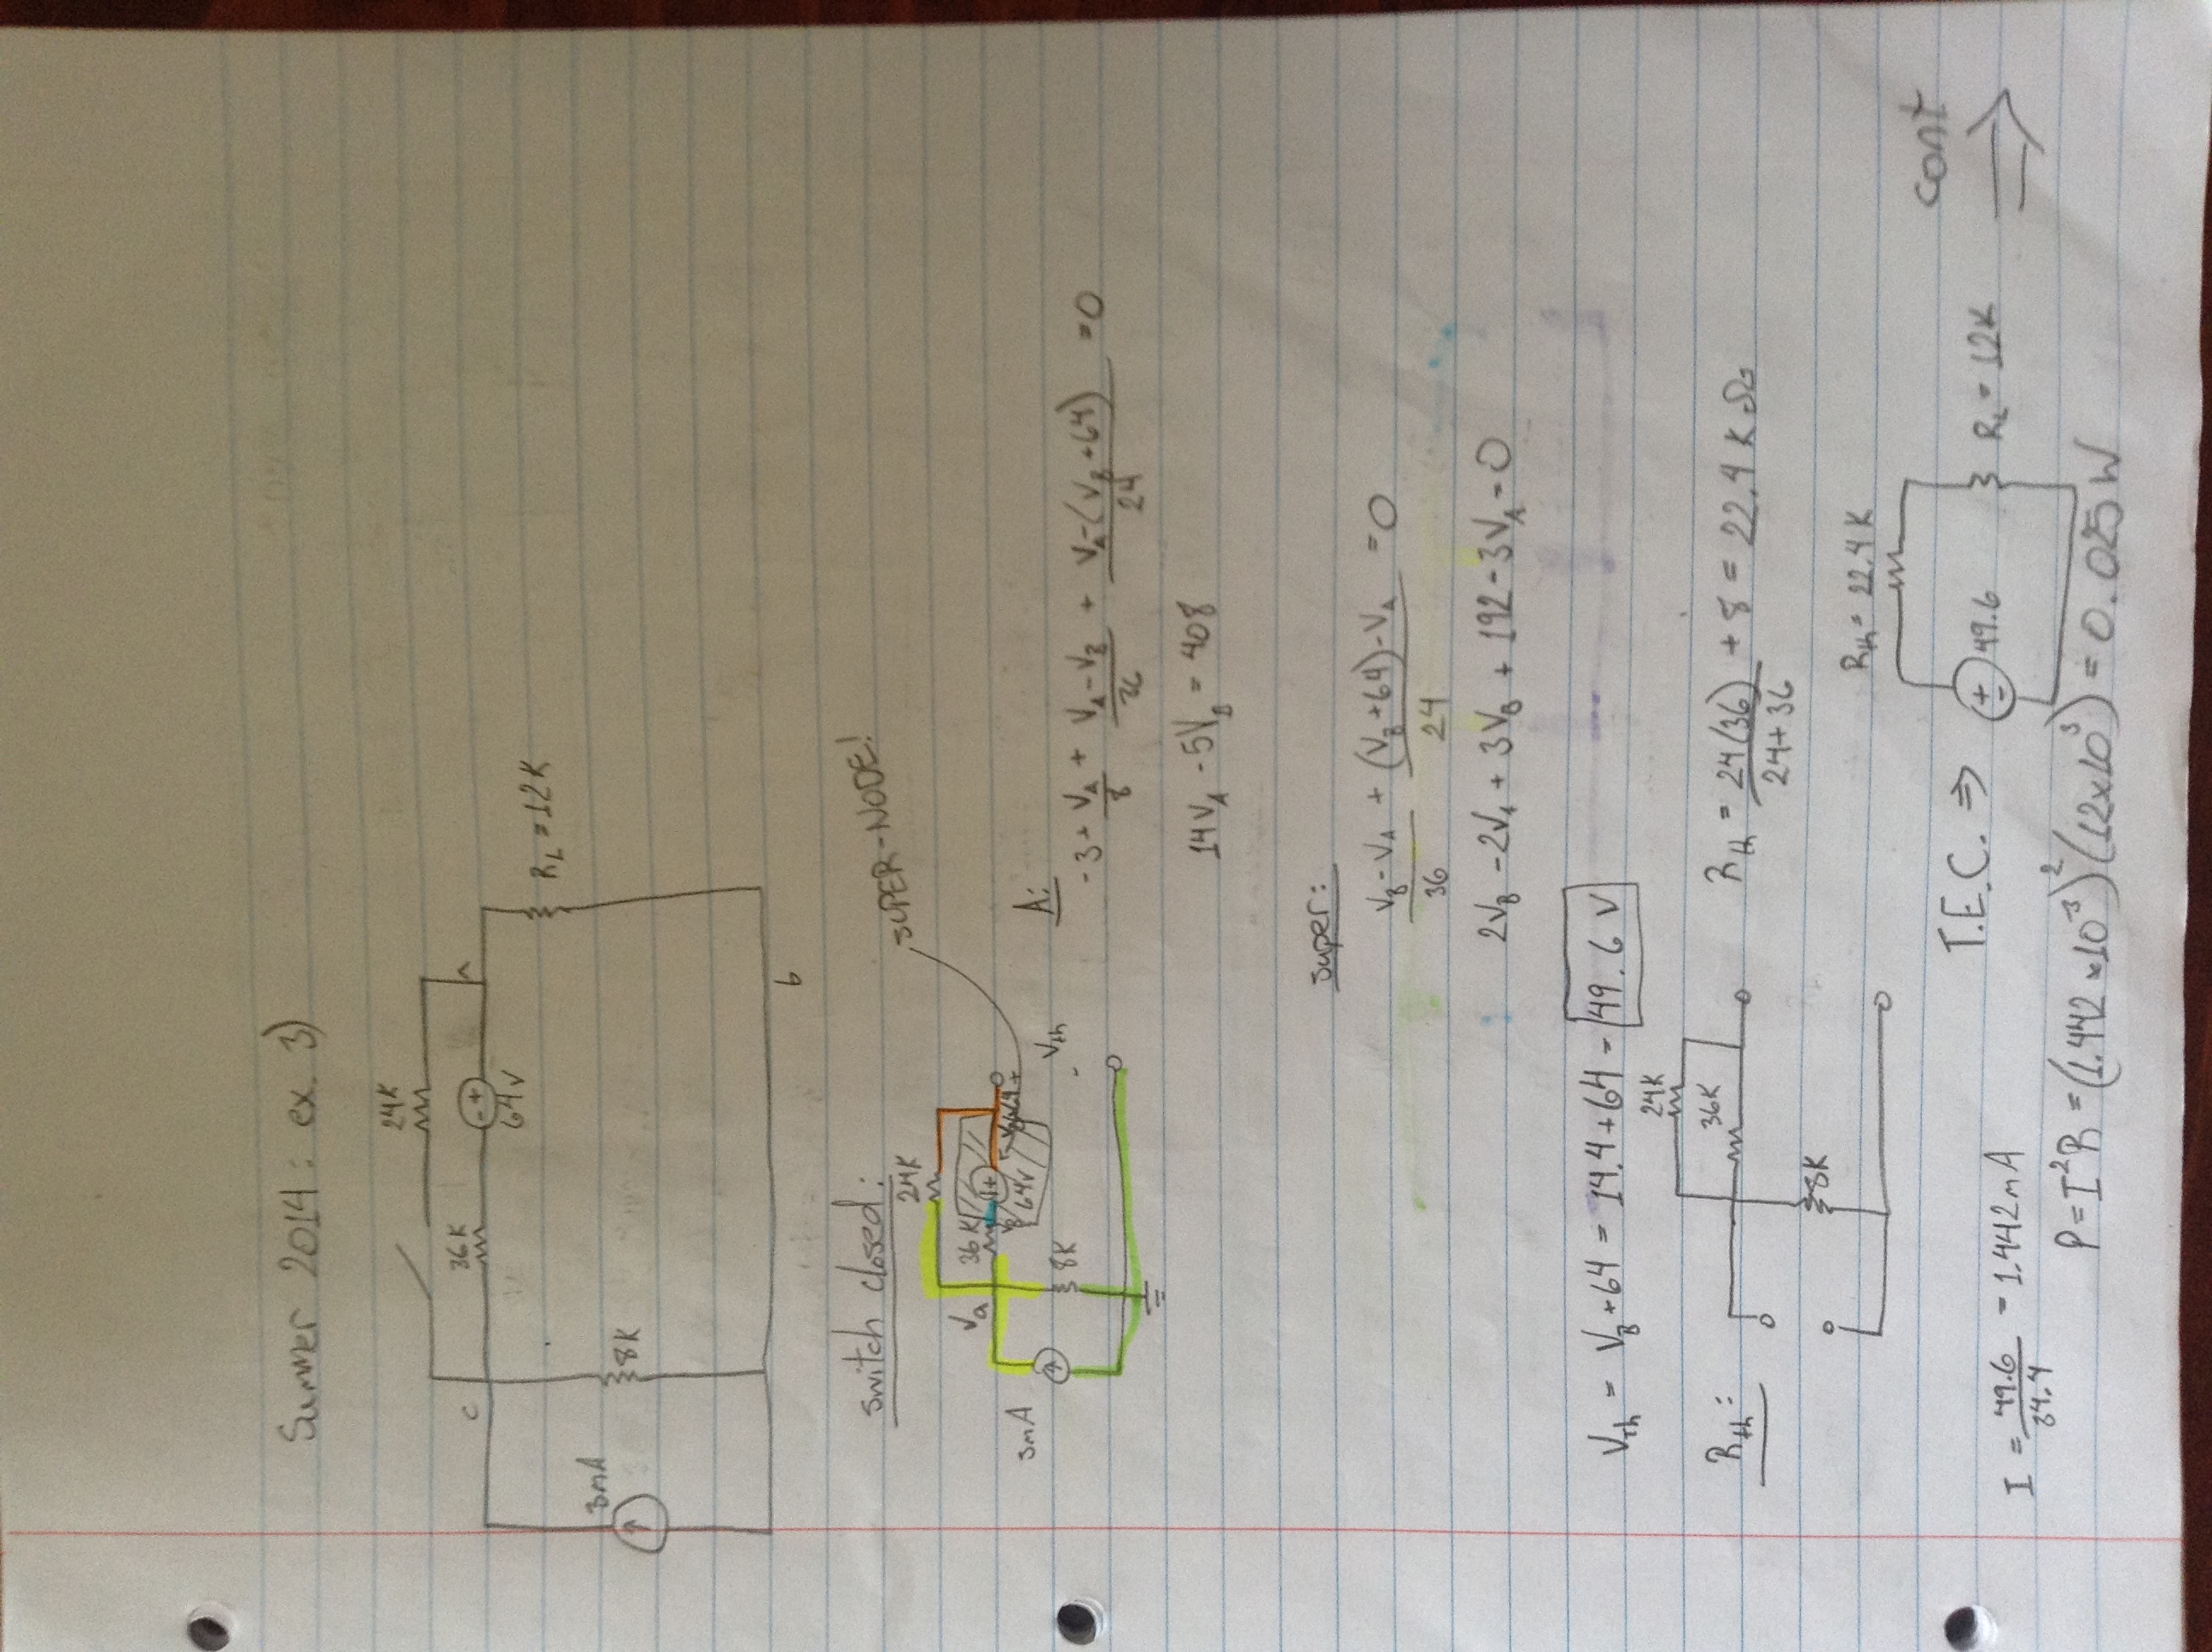 Summer 2014: ex. 3)
24K
C
36K
- +
64V
A
RL = 12K
3mA
8K
b
switch closed:
SUPER-NODE!
24K
Va
36K
+
3mA
64V
+
8K
Vth
-
A:
-3 + VA/8 + (VA - VB)/36 + (VA - (VB + 64))/24 = 0
14VA - 5VB = 408
super:
(VB - VA)/36 + ((VB + 64) - VA)/24 = 0
2VB - 2VA + 3VB + 192 - 3VA = 0
Vth = VB + 64 = 14.4 + 64 = 49.6 V
24K
36K
Rth:
Rth = 24(36)/(24+36) + 8 = 22.4 K Ω
8K
Rth = 22.4 K
cont
T.E.C. ⇒
+
-
49.6
RL = 12K
⇒
I = 49.6/34.4 = 1.442mA
P = I²R = (1.442 × 10⁻³)² (12×10³) = 0.025 W